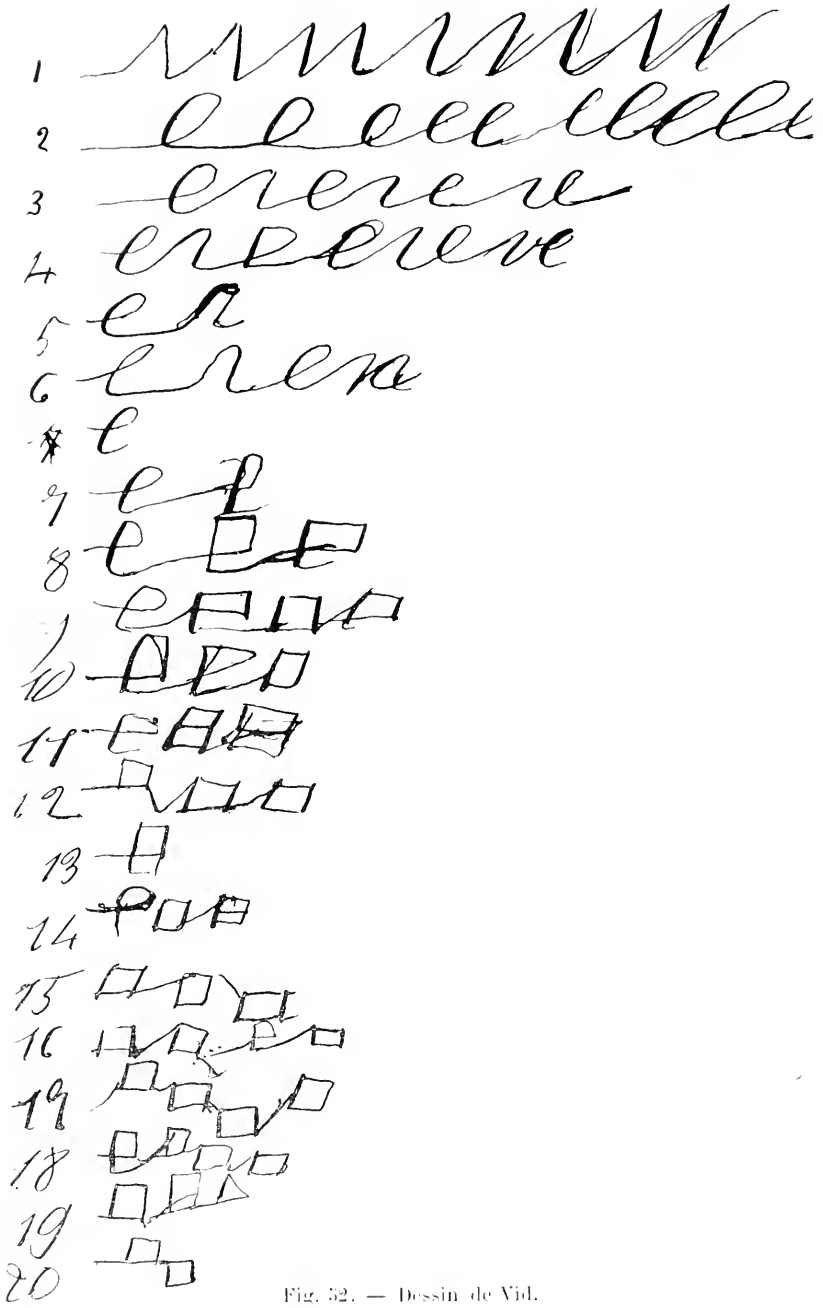 1
2
3
4
5
6
7
8
9
10
11
12
13
14
15
16
17
18
19
20
Fig. 52. — Dessin de Vid.